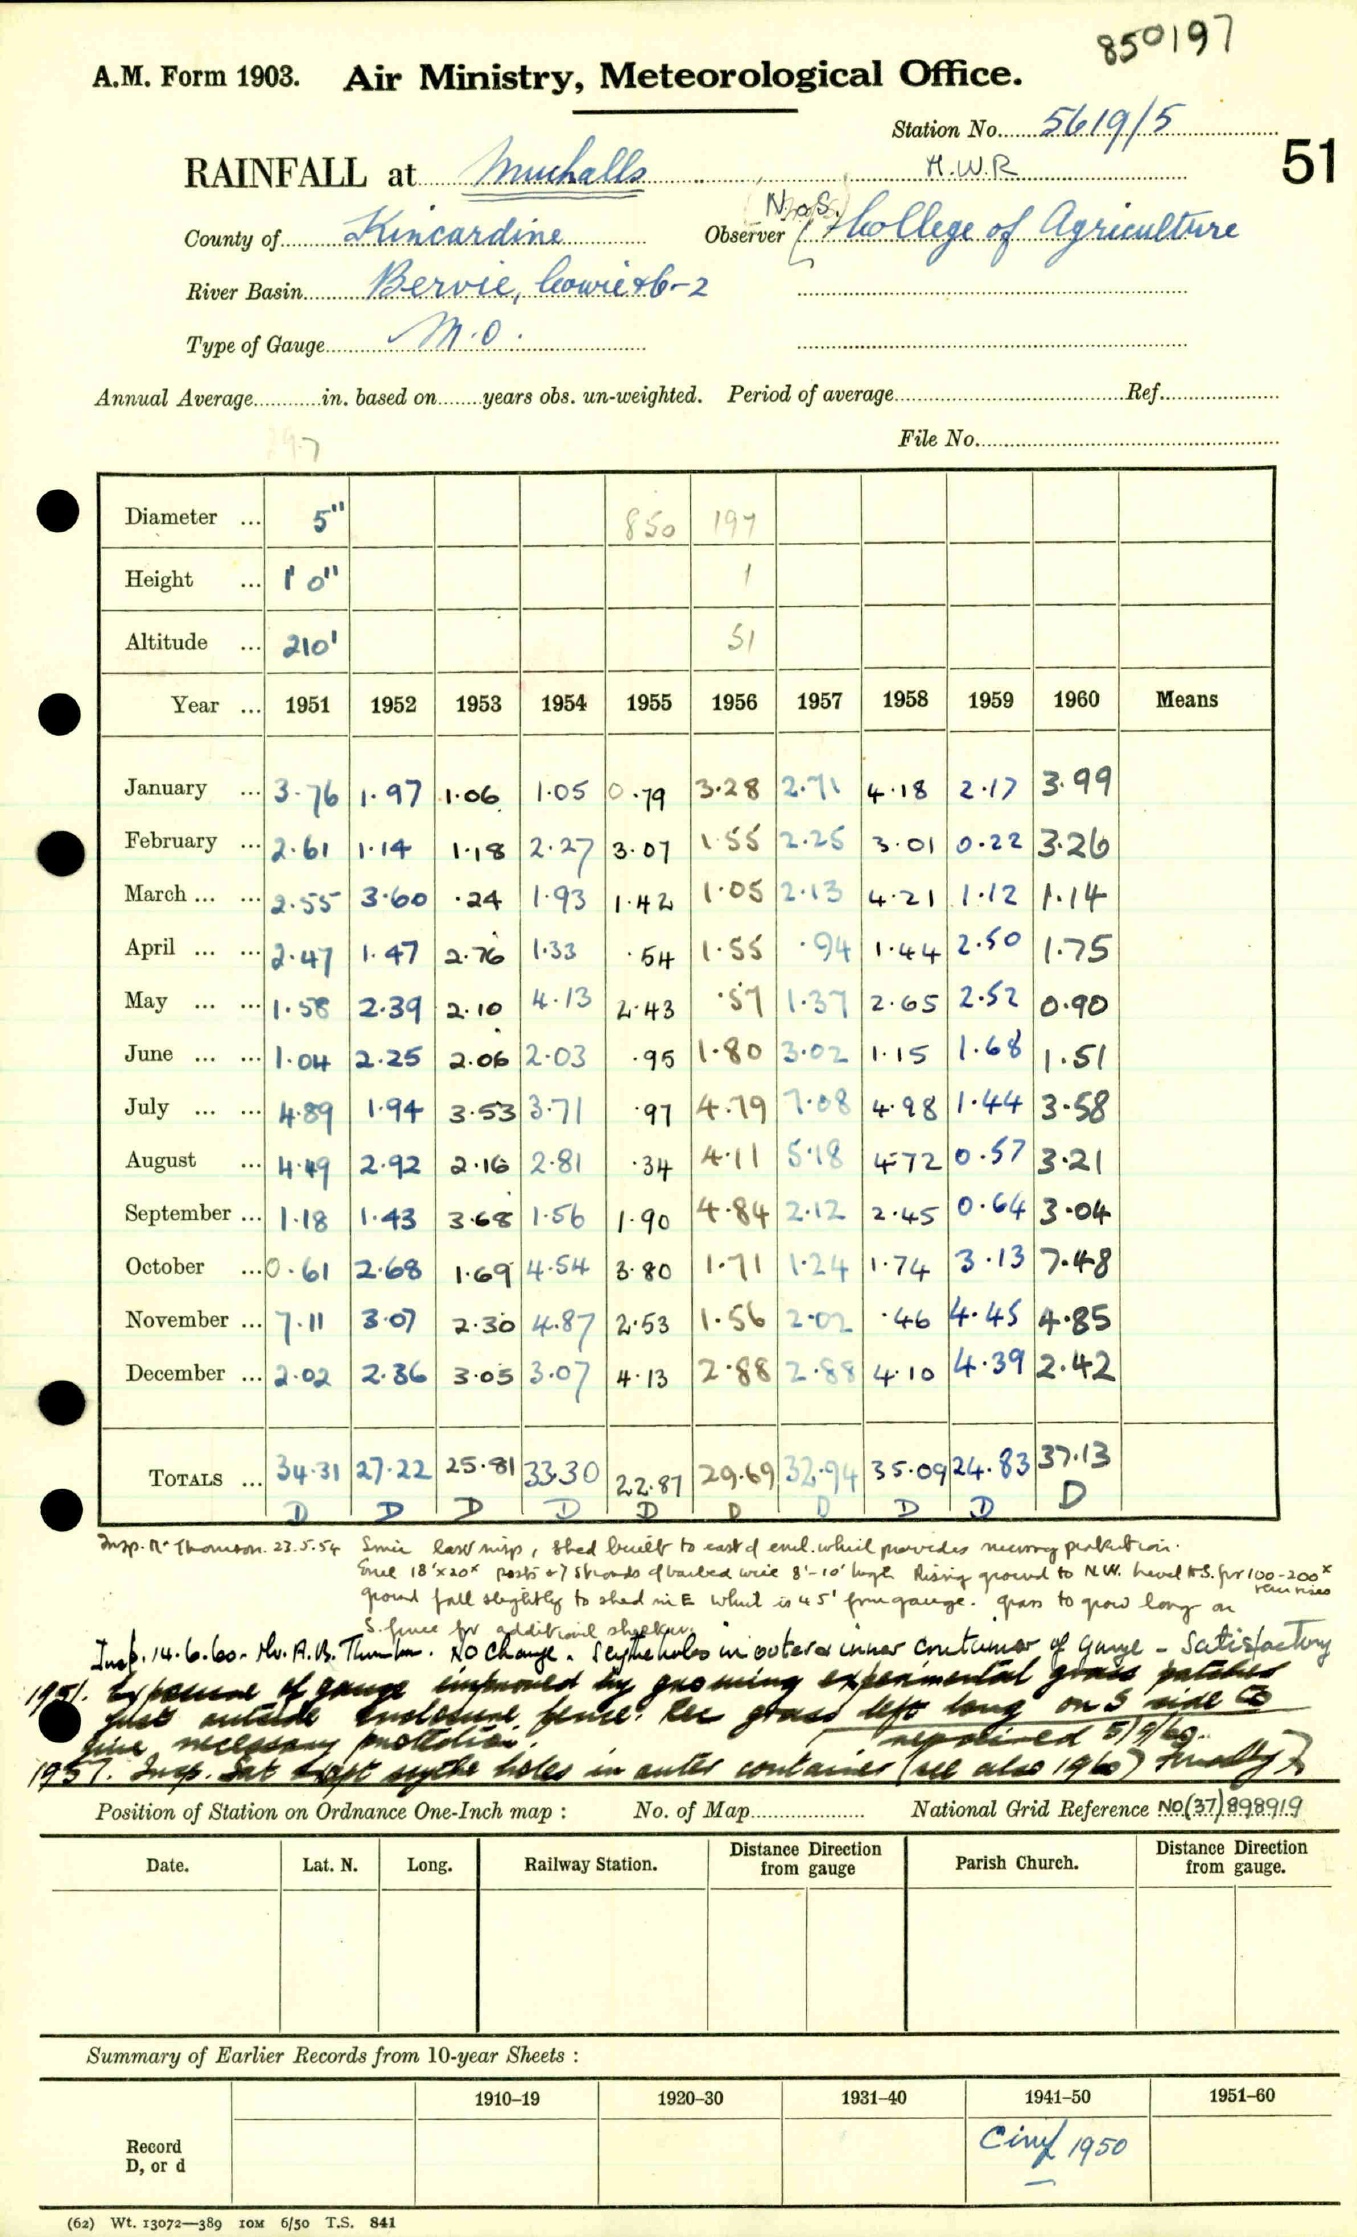 850197
A.M. Form 1903. Air Ministry, Meteorological Office.
Station No. 5619/5
51
RAINFALL at Muchalls H.W.R
County of Kincardine Observer N.oS. College of Agriculture
River Basin Bervie, Cowie &c 6-2
Type of Gauge M.O.
Annual Average in. based on years obs. un-weighted. Period of average Ref.
29.7 File No.
Diameter ... 5" 850 197
Height ... 1' 0" 1
Altitude ... 210' 51
Year ... 1951 1952 1953 1954 1955 1956 1957 1958 1959 1960 Means
January ... 3.76 1.97 1.06 1.05 0.79 3.28 2.71 4.18 2.17 3.99
February ... 2.61 1.14 1.18 2.27 3.07 1.55 2.25 3.01 0.22 3.26
March ... ... 2.55 3.60 .24 1.93 1.42 1.05 2.13 4.21 1.12 1.14
April ... ... 2.47 1.47 2.76 1.33 .54 1.55 .94 1.44 2.50 1.75
May ... ... 1.58 2.39 2.10 4.13 2.43 .57 1.37 2.65 2.52 0.90
June ... ... 1.04 2.25 2.06 2.03 .95 1.80 3.02 1.15 1.68 1.51
July ... ... 4.89 1.94 3.53 3.71 .97 4.79 7.08 4.98 1.44 3.58
August ... 4.49 2.92 2.16 2.81 .34 4.11 5.18 4.72 0.57 3.21
September ... 1.18 1.43 3.68 1.56 1.90 4.84 2.12 2.45 0.64 3.04
October ... 0.61 2.68 1.69 4.54 3.80 1.71 1.24 1.74 3.13 7.48
November ... 7.11 3.07 2.30 4.87 2.53 1.56 2.02 .46 4.45 4.85
December ... 2.02 2.36 3.05 3.07 4.13 2.88 2.88 4.10 4.39 2.42
TOTALS ... 34.31 27.22 25.81 33.30 22.87 29.69 32.94 35.09 24.83 37.13
D D D D D D D D D D
Insp. Mr Thomson. 23.5.54 Since last insp, shed built to east of encl. which provides necessary protection.
Encl 18'x20' posts & 7 strands of barbed wire 8'-10' high Rising ground to N.W. Level to S. for 100-200x
then rises
ground fall slightly to shed in E which is 45' from gauge. grass to grow long on
S. fence for additional shelter.
Insp. 14.6.60. Mr. A.B. Thomson. No change. Scythe holes in outer & inner container of gauge - Satisfactory
1951. Exposure of gauge improved by growing experimental grass patches
just outside enclosure fence. Rec grass left long on S side to
give necessary protection. repaired 5/9/60.
1957. Insp. Sat except scythe holes in outer container (see also 1960)
Position of Station on Ordnance One-Inch map : No. of Map National Grid Reference NO(37)898919
Date. Lat. N. Long. Railway Station. Distance Direction from gauge Parish Church. Distance Direction from gauge.
Summary of Earlier Records from 10-year Sheets :
1910–19 1920–30 1931–40 1941–50 1951–60
Record D, or d 1950
(62) Wt. 13072—389 10M 6/50 T.S. 841